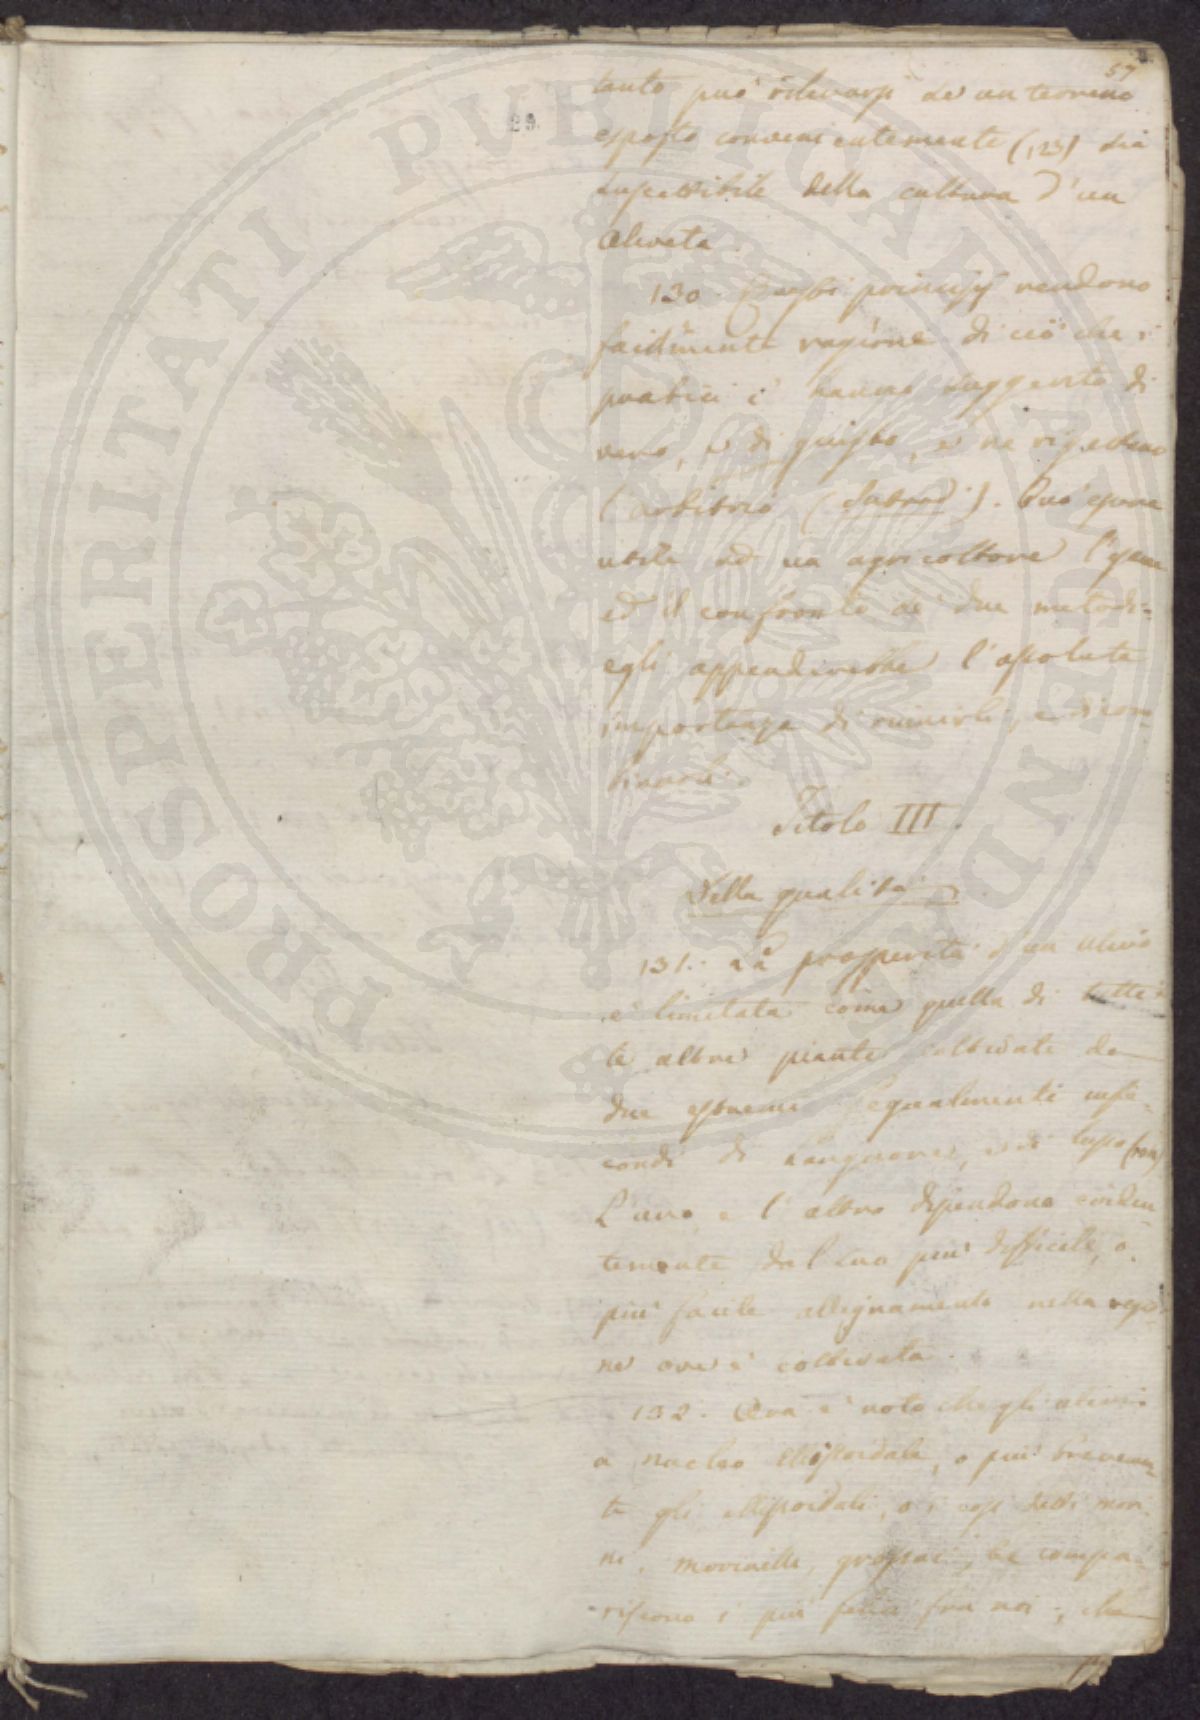 57
29.
tanto può rilevarsi se un terreno
esposto convenientemente (123) sia
suscettibile della cultura d'un
Oliveta.
130. Questi principj rendono
facilmente ragione di ciò che i
pratici ci hanno suggerito di
vero, e di giusto, e ne rigettano
l'arbitrio. Può essere
utile ad un agricoltore l'esame
ed il confronto de' due metodi:
egli apprenderebbe l'assoluta
importanza di riunirli, e di com
binarli.
Titolo III.
Della qualità.
131. La prosperità d'un ulivo
è limitata come quella di tutte
le altre piante coltivate da
due estremi egualmente infe
condi di languore, e di lusso
L'uno, e l'altro dipendono eviden
temente dal suo più difficile, o
più facile allignamento nella regio
ne ove è coltivata.
132. Ora è noto che gli ulivi
a nucleo ellissoidale, o più brevemen
te gli ellissoidali, o i così detti mori
ni, morinelli, grossai, &c compa
riscono i più felici fra noi; che